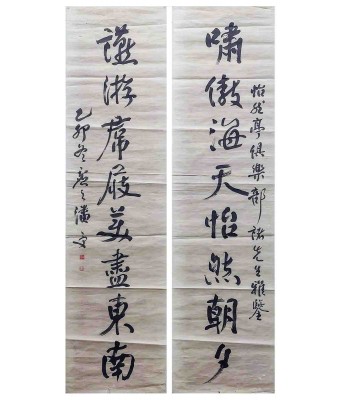 嘯傲海天怡然朝夕
怡然亭俱樂部諸先生雅鑒
讌游席履美盡東南
乙卯冬